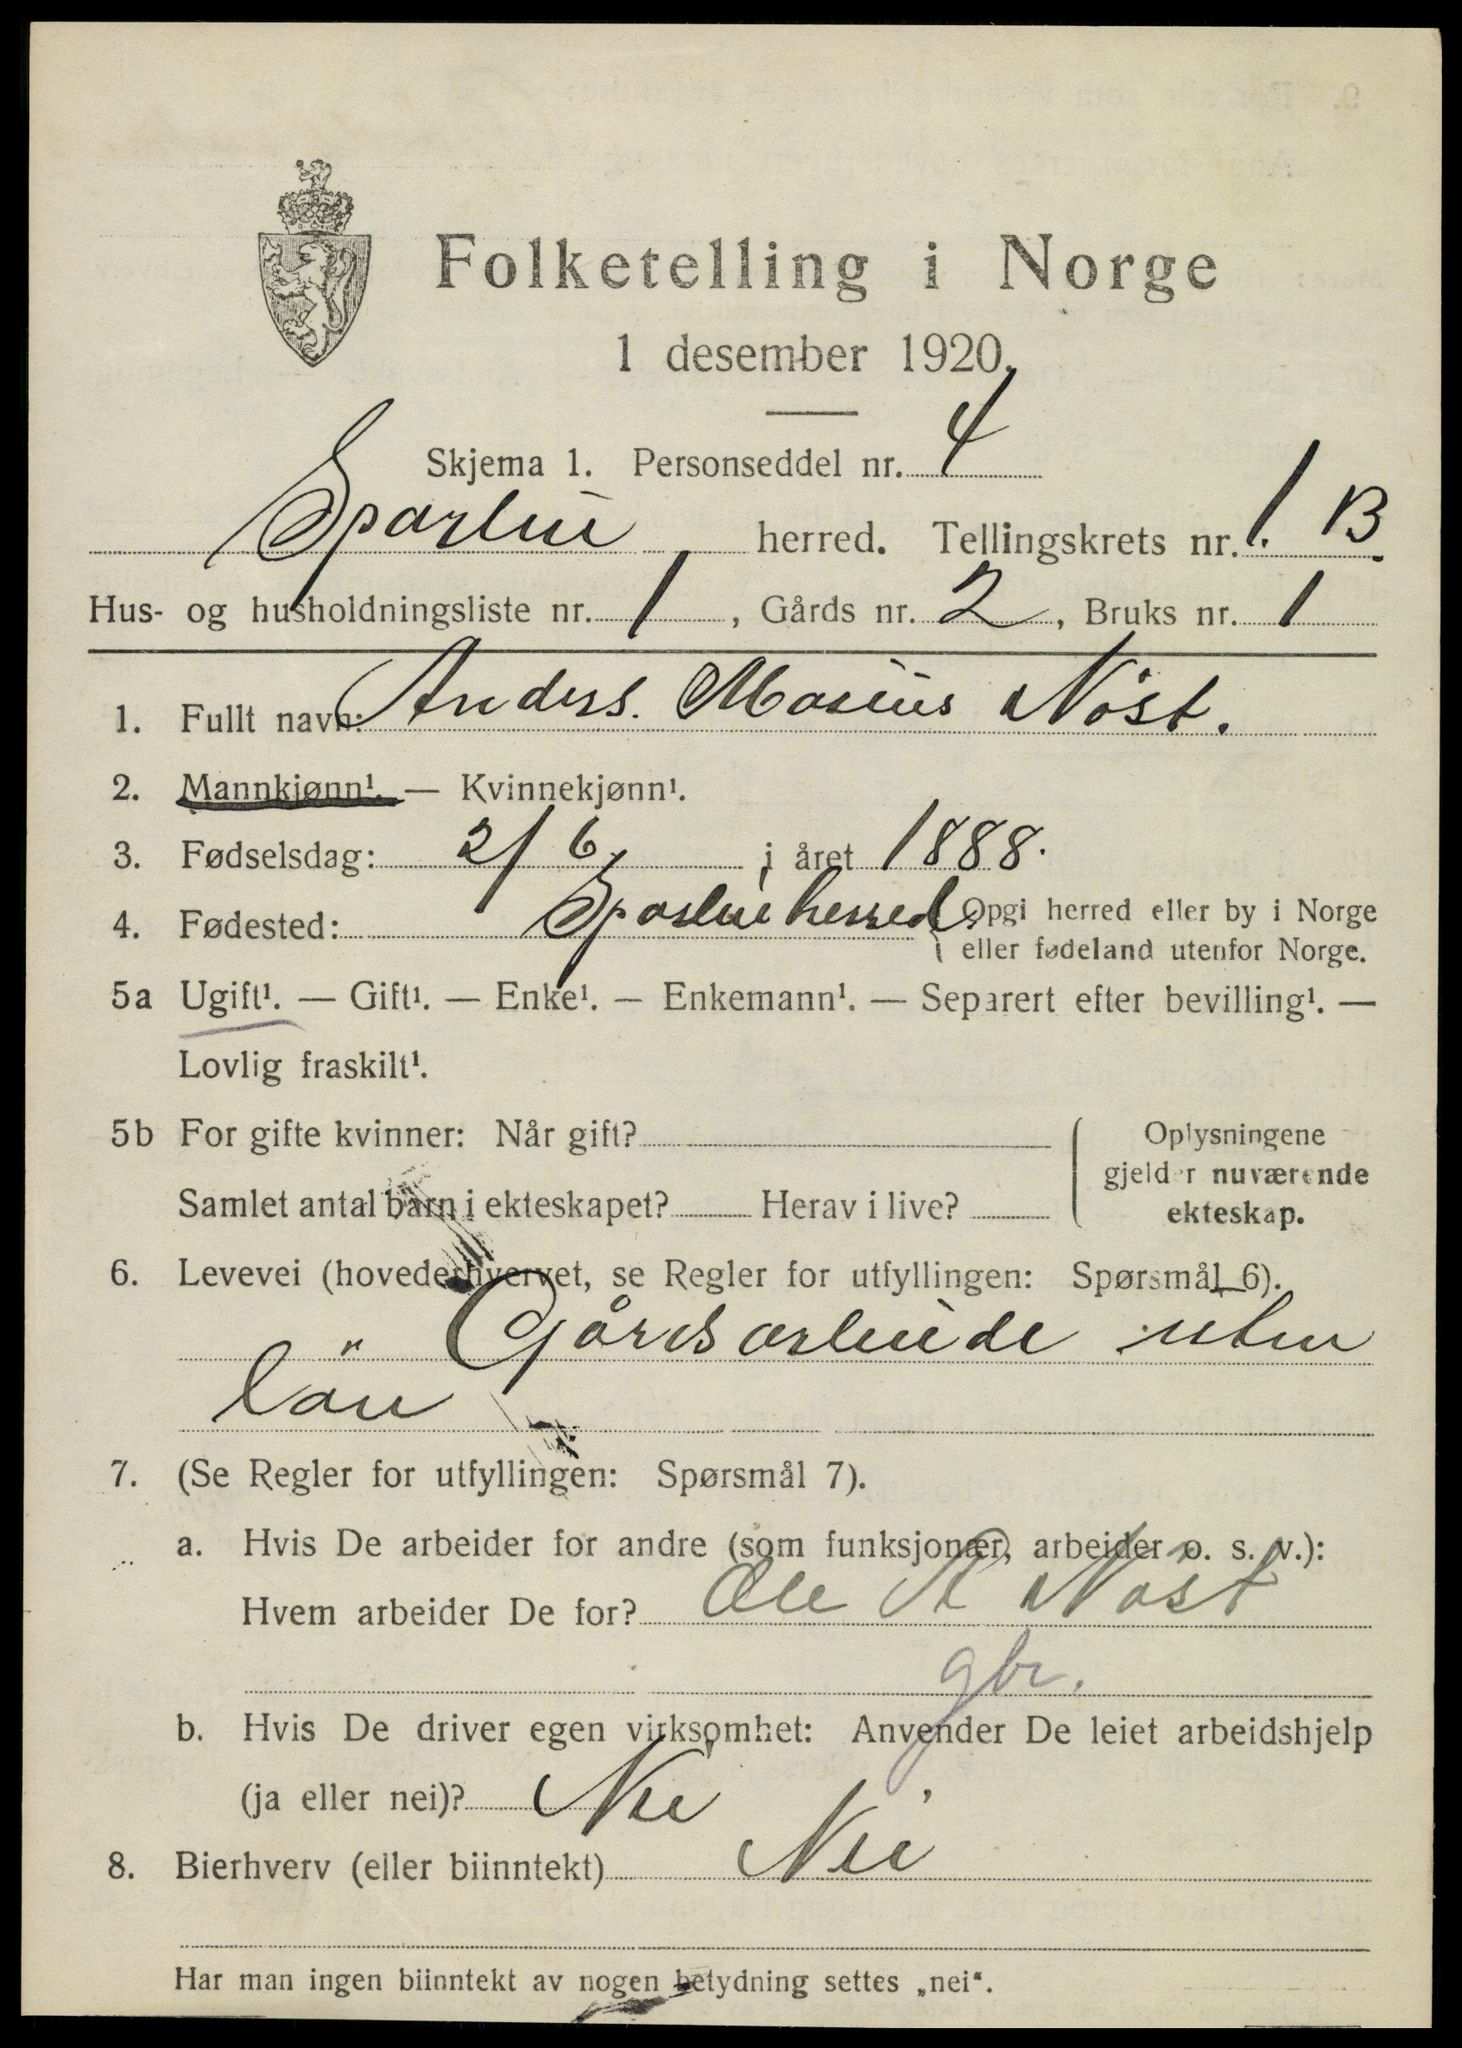 Folketelling i Norge
1 desember 1920.
Skjema 1. Personseddel nr. 4
Sparbu herred. Tellingskrets nr. 1. B.
Hus- og husholdningsliste nr. 1, Gårds nr. 2, Bruks nr. 1
1. Fullt navn: Anders. Marius Nöst.
2. Mannkjønn¹. — Kvinnekjønn¹.
3. Fødselsdag: 2/6 i året 1888.
4. Fødested: Sparbu herred. Opgi herred eller by i Norge
eller fødeland utenfor Norge.
5a Ugift¹. — Gift¹. — Enke¹. — Enkemann¹. — Separert efter bevilling¹. —
Lovlig fraskilt¹.
5b For gifte kvinner: Når gift?
Samlet antal barn i ekteskapet? Herav i live?
Oplysningene
gjelder nuværende
ekteskap.
6. Levevei (hovederhvervet, se Regler for utfyllingen: Spørsmål 6).
Gårdsarbeide uten
lön
7. (Se Regler for utfyllingen: Spørsmål 7).
a. Hvis De arbeider for andre (som funksjonær, arbeider o. s. v.):
Hvem arbeider De for? Ole A Nöst
gbr.
b. Hvis De driver egen virksomhet: Anvender De leiet arbeidshjelp
(ja eller nei)? Nei
8. Bierhverv (eller biinntekt) Nei
Har man ingen biinntekt av nogen betydning settes „nei“.